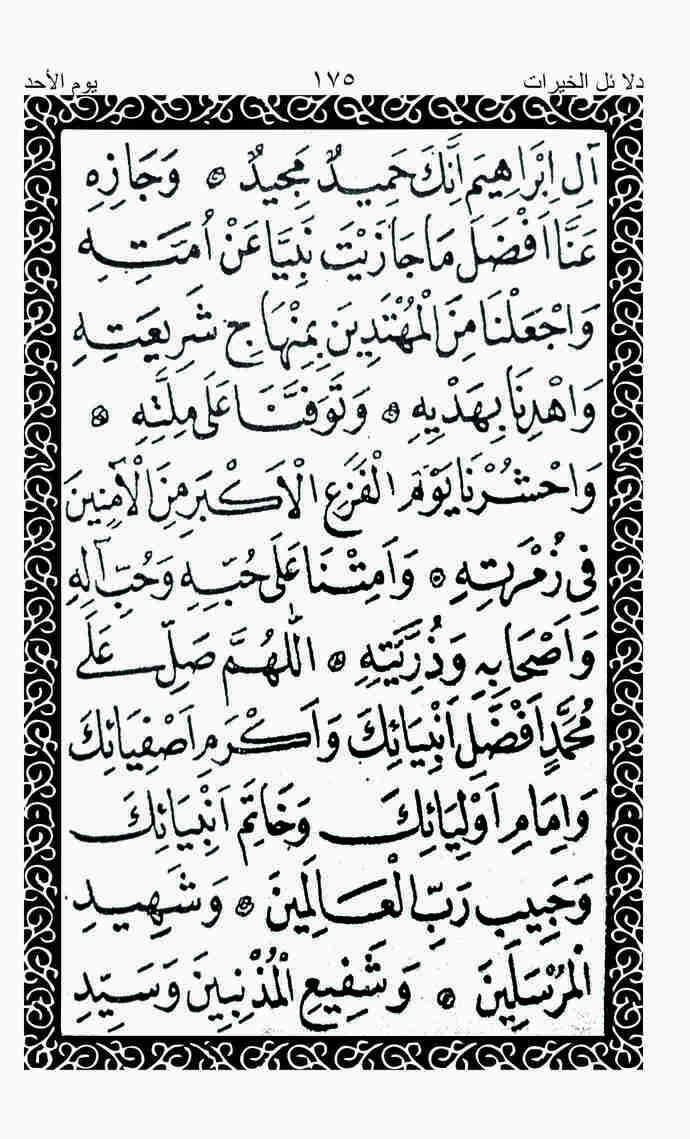 دلائل الخيرات ١٧٥ يوم الأحد
آلِ اِبْرَاهِيمَ اِنَّكَ حَمِيدٌ مَجِيدٌ ۞ وَجَازِهِ
عَنَّا اَفْضَلَ مَا جَازَيْتَ نَبِيًّا عَنْ اُمَّتِهِ
وَاجْعَلْنَا مِنَ الْمُهْتَدِينَ بِمِنْهَاجِ شَرِيعَتِهِ
وَاهْدِنَا بِهَدْيِهِ ۞ وَتَوَفَّنَا عَلَى مِلَّتِهِ ۞
وَاحْشُرْنَا يَوْمَ الْفَزَعِ الْاَكْبَرِ مِنَ الْاٰمِنِينَ
فِي زُمْرَتِهِ ۞ وَاَمِتْنَا عَلَى حُبِّهِ وَحُبِّ آلِهِ
وَاَصْحَابِهِ وَذُرِّيَّتِهِ ۞ اَللّٰهُمَّ صَلِّ عَلَى
مُحَمَّدٍ اَفْضَلِ اَنْبِيَائِكَ وَاَكْرَمِ اَصْفِيَائِكَ
وَاِمَامِ اَوْلِيَائِكَ وَخَاتَمِ اَنْبِيَائِكَ
وَحَبِيبِ رَبِّ الْعَالَمِينَ ۞ وَشَهِيدِ
الْمُرْسَلِينَ ۞ وَشَفِيعِ الْمُذْنِبِينَ وَسَيِّدِ